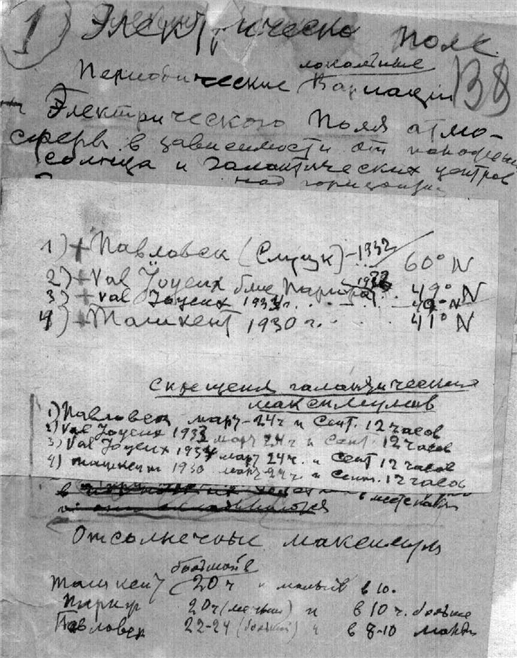 1) Электрическо поле
локальные
Периодические Вариации
В8
Электрического Поля атмо-
сферы в зависимости от
солнца и галактических центров
над горизонтом
1) + Павловск (Слуцк) – 1932 60° N
2) + Val Joyeux близ Парижа 49° N
3) + Val Joyeux г. 49° N
4) + Ташкент 1930 г. 41° N
Скрещения галактических
максимумов
1) Павловск март – 24 ч и Сент. 12 часов
2) Val Joyeux март 24 ч. и Сент. 12 часов
3) Val Joyeux март 24 ч. и Сент 12 часов
4) Ташкент 1930 март 24 ч. и Сент. 12 часов
Отсолнечные максимумы
большой
Ташкент 20 ч и малый в 10.
Париж 20 ч и в 10 ч.
Павловск 22–24 в 8–10